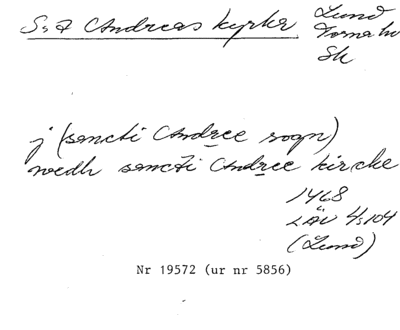 S:t Andreas kyrka
Lund
Torna hd
Sk
j (sancti Andree sogn)
wedh sancti Andree kircke
1468
LÄU 4:104
(Lund)
Nr 19572 (ur nr 5856)